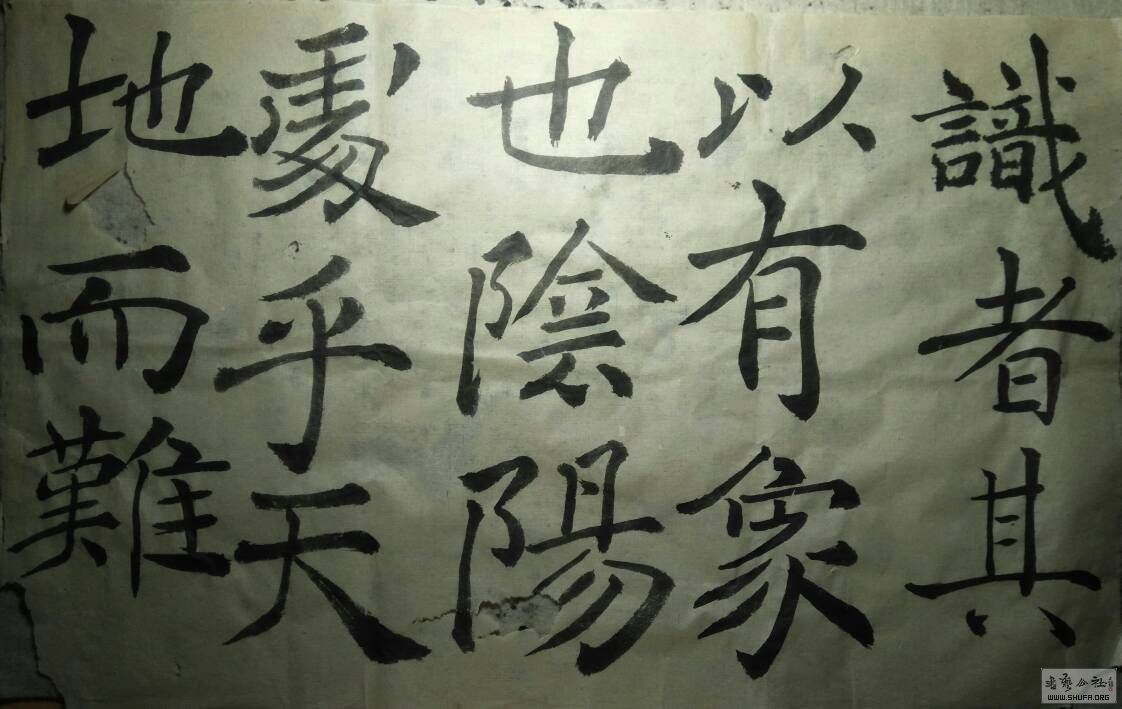 識者其
以有象
也陰陽
處乎天
地而難
书艺公社
WWW.SHUFA.ORG